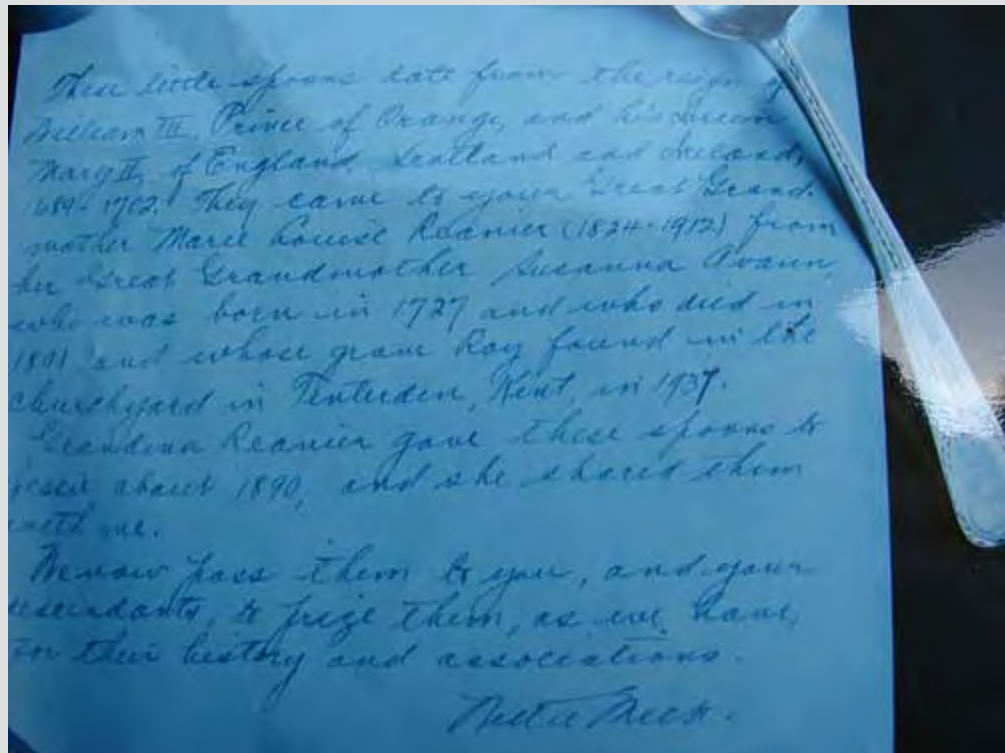 These little spoons date from the reign of
William III, Prince of Orange, and his Queen
Mary II, of England, Scotland and Ireland,
1689-1702. They came to your Great Grand-
mother Marie Louise Reanier (1824-1912) from
her Great Grandmother Susanna Avann,
who was born in 1727 and who died in
1801 and whose grave Roy found in the
churchyard in Tenterden, Kent, in 1937.
Grandma Reanier gave these spoons to
about 1890, and she shared them
with me.
We now pass them to you, and your
descendants, to prize them, as we have,
for their history and associations.